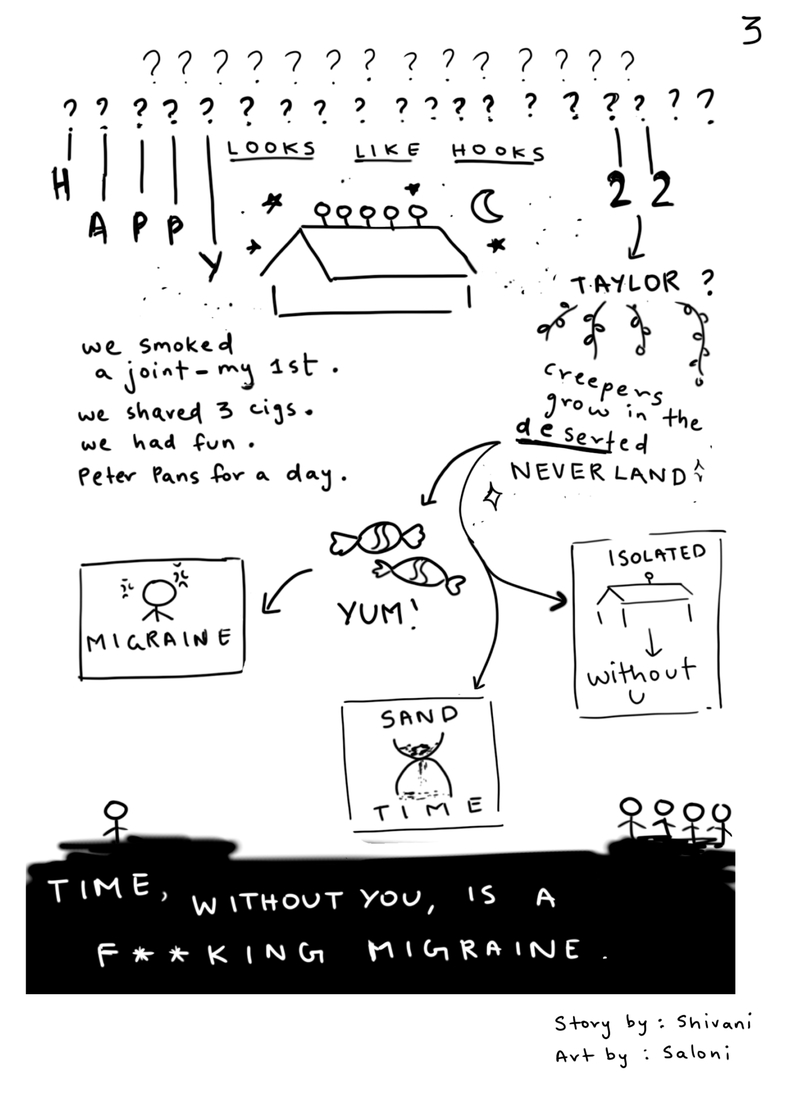 3
? ? ? ? ? ? ? ? ? ? ? ? ? ?
? ? ? ? ? ? ? ? ? ? ? ? ? ? ? ? ? ?
LOOKS LIKE HOOKS
HAPPY
22
TAYLOR ?
we smoked
a joint - my 1st .
we shared 3 cigs .
we had fun .
Peter Pans for a day .
creepers
grow in the
deserted
NEVERLAND
YUM!
MIGRAINE
ISOLATED
without
U
SAND
TIME
TIME, WITHOUT YOU, IS A
F**KING MIGRAINE .
Story by : Shivani
Art by : Saloni